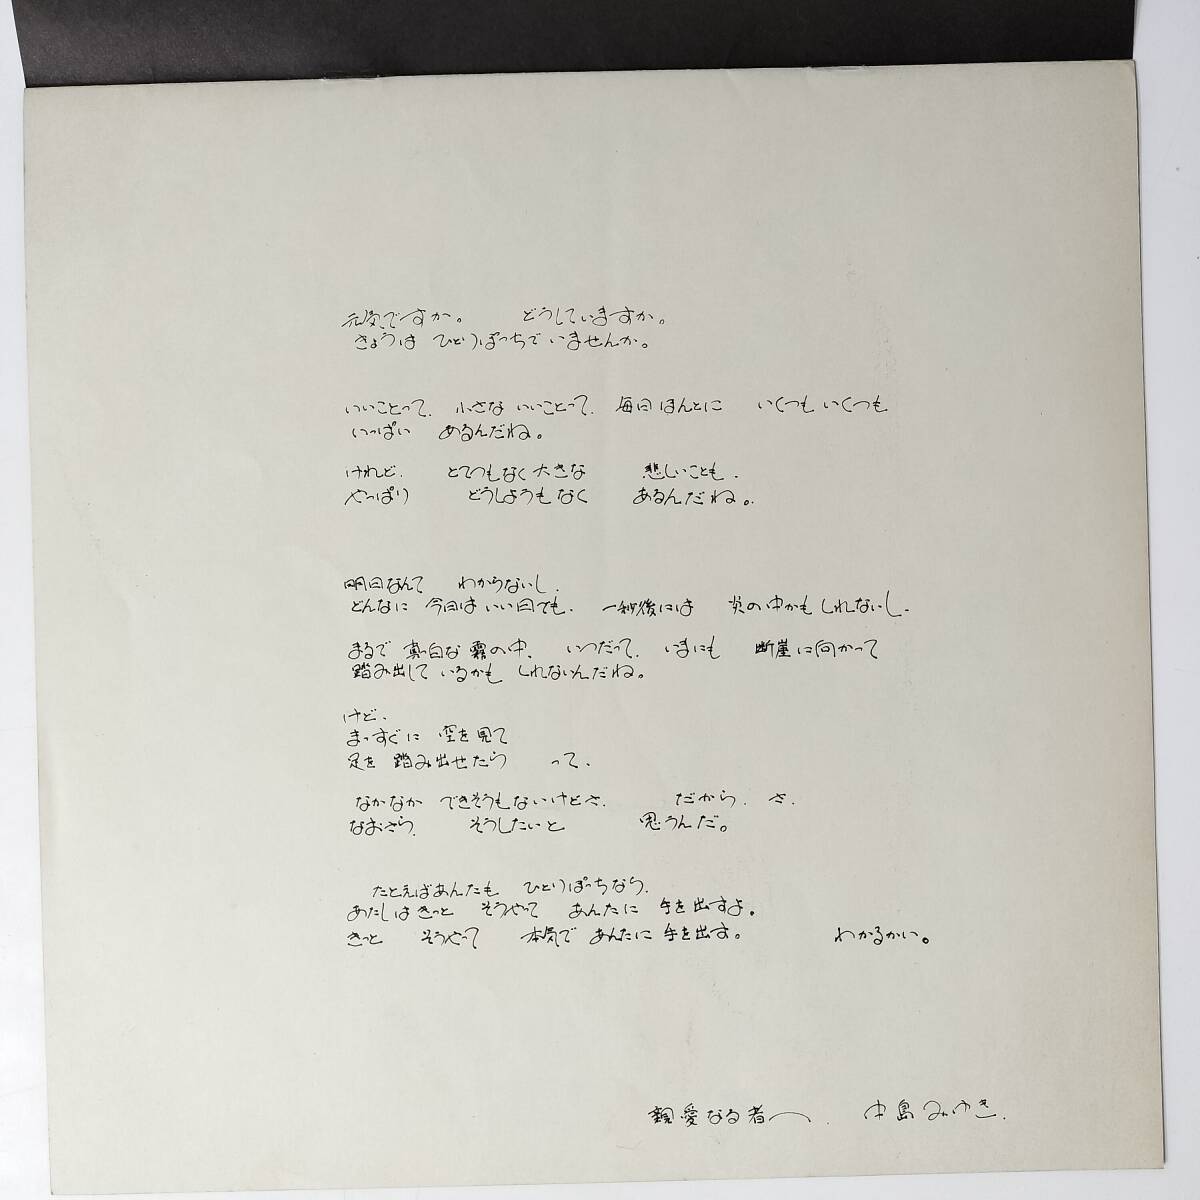 元気ですか。 どうしていますか。
きょうは ひとりぼっちで いませんか。
いいことって、 小さな いいことって、 毎日 ほんとに いくつも いくつも
いっぱい あるんだね。
けれど、 とてつもなく 大きな 悲しいことも、
やっぱり どうしようもなく あるんだね。
明日なんて わからないし、
どんなに 今日は いい日でも、 一秒後には 炎の中かも しれないし、
まるで 真白な 霧の中、 いつだって、 いまにも 断崖に向かって
踏み出して いるかも しれないんだね。
けど、
まっすぐに 空を 見て
足を 踏み出せたら って、
なかなか できそうもないけどさ、 だから、 さ、
なおさら、 そうしたいと 思うんだ。
たとえばあんたも ひとりぼっちなら、
あたしはきっと そうやって あんたに 手を出すよ。
きっと そうやって 本気で あんたに 手を出す。 わかるかい。
親愛なる者へ、 中島みゆき、